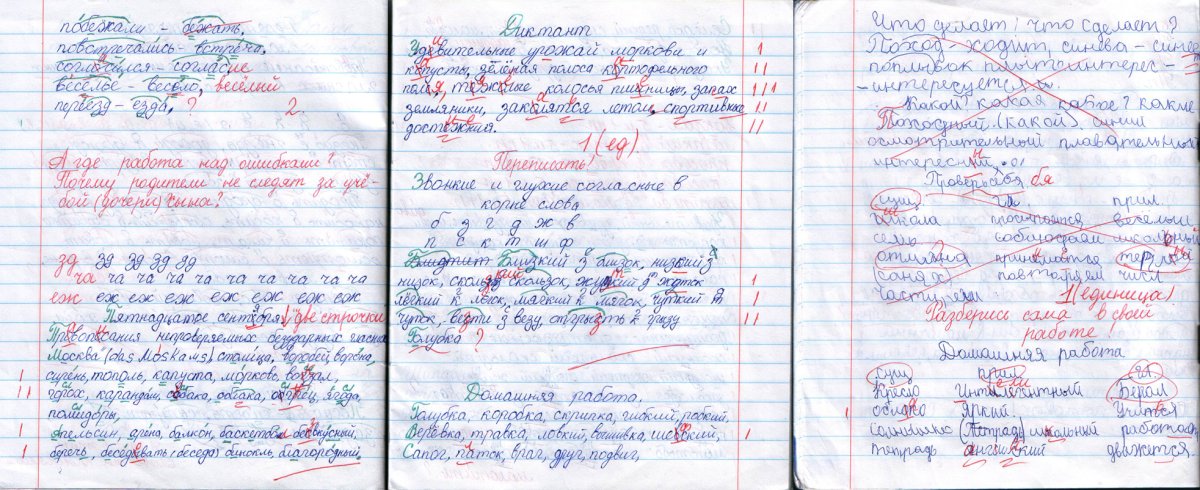 побежали - бежать,
повстречались - встреча,
согласился - согласие
веселье - весело, весёлый
переезд - езда, ? 2.
А где работа над ошибками?
Почему родители не следят за учё-
бой (дочери) сына?
зд зд зд зд зд
ча ча ча ча ча ча ча ча ча ча
еж еж еж еж еж еж еж
Пятнадцатое сентября. две строчки
Правописания непроверяемых безударных
Москва (das Moskaus) столица, воробей, ворона,
сирень, тополь, капуста, морковь, вокзал,
горох, карандаш, собака, облака, огурец, ягода,
помидоры,
апельсин, арена, балкон, баскетбол безвкусный,
беречь, беседовать (беседа) бинокль, благородный,
Диктант
Удевительные урожай моркови и
капусты, зелёная полоса картофельного
поля, тяжёлые колосья пшеницы, запах
земляники, закалятся летом, спортивные
достежния.
1 (ед)
Переписать!
Звонкие и глухие согласные в
корне слова
б з г д ж в
п с к т ш ф
Близкий з близок, низкий з
низок, скользок, жидкий д жидок
лёгкий к лёгок, мягкий к мягок, чуткий т
чуток, везти з везу, отгрызть к грызу
Голубка ?
Домашняя работа.
Голубка, коробка, скрипка, гибкий, робкий,
Верёвка, травка, ловкий, вышивка, шёлковый,
Сапог, паток, враг, друг, подвиг,
Что делает? что сделает?
Поход - ходит, синева - синеет
поплывок плыть интерес -
- интересуется.
Какой? какая какое? какие
Походный (какой) синий
осмотрительный плавательный
интересный.
Проверь себя.
сущ. гл. прил.
школа простоется весёлый
семь соблюдаем школьный
отлична
(саня х) повтаряем числ
части
1 (единица)
Разберись сама в своей
работе!
Домашняя работа
сущ прил гл
Кресло Интилегентный Бежал
облако Яркий. Учится
Солнышко (Тетрадь) школьный работать
тетрадь английский движется.